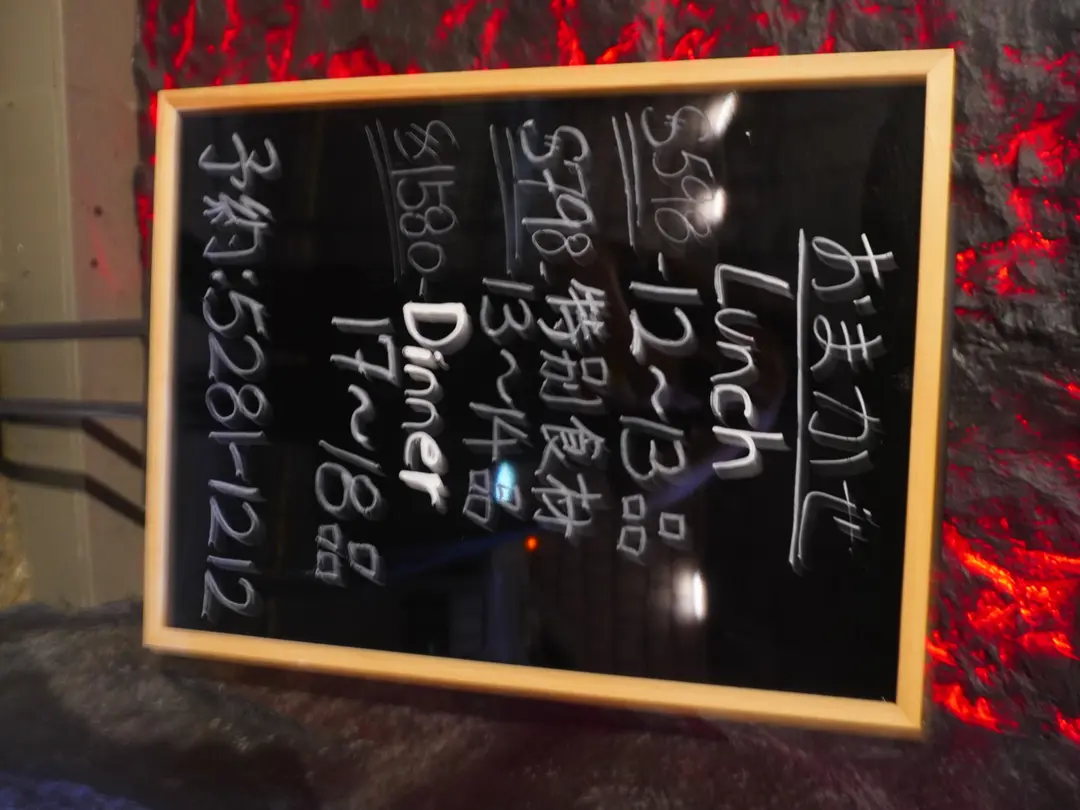 おまかせ
Lunch
$598-12～13品
$798-特別食材
13～14品
Dinner
$1580-17～18品
予約:5281-1212